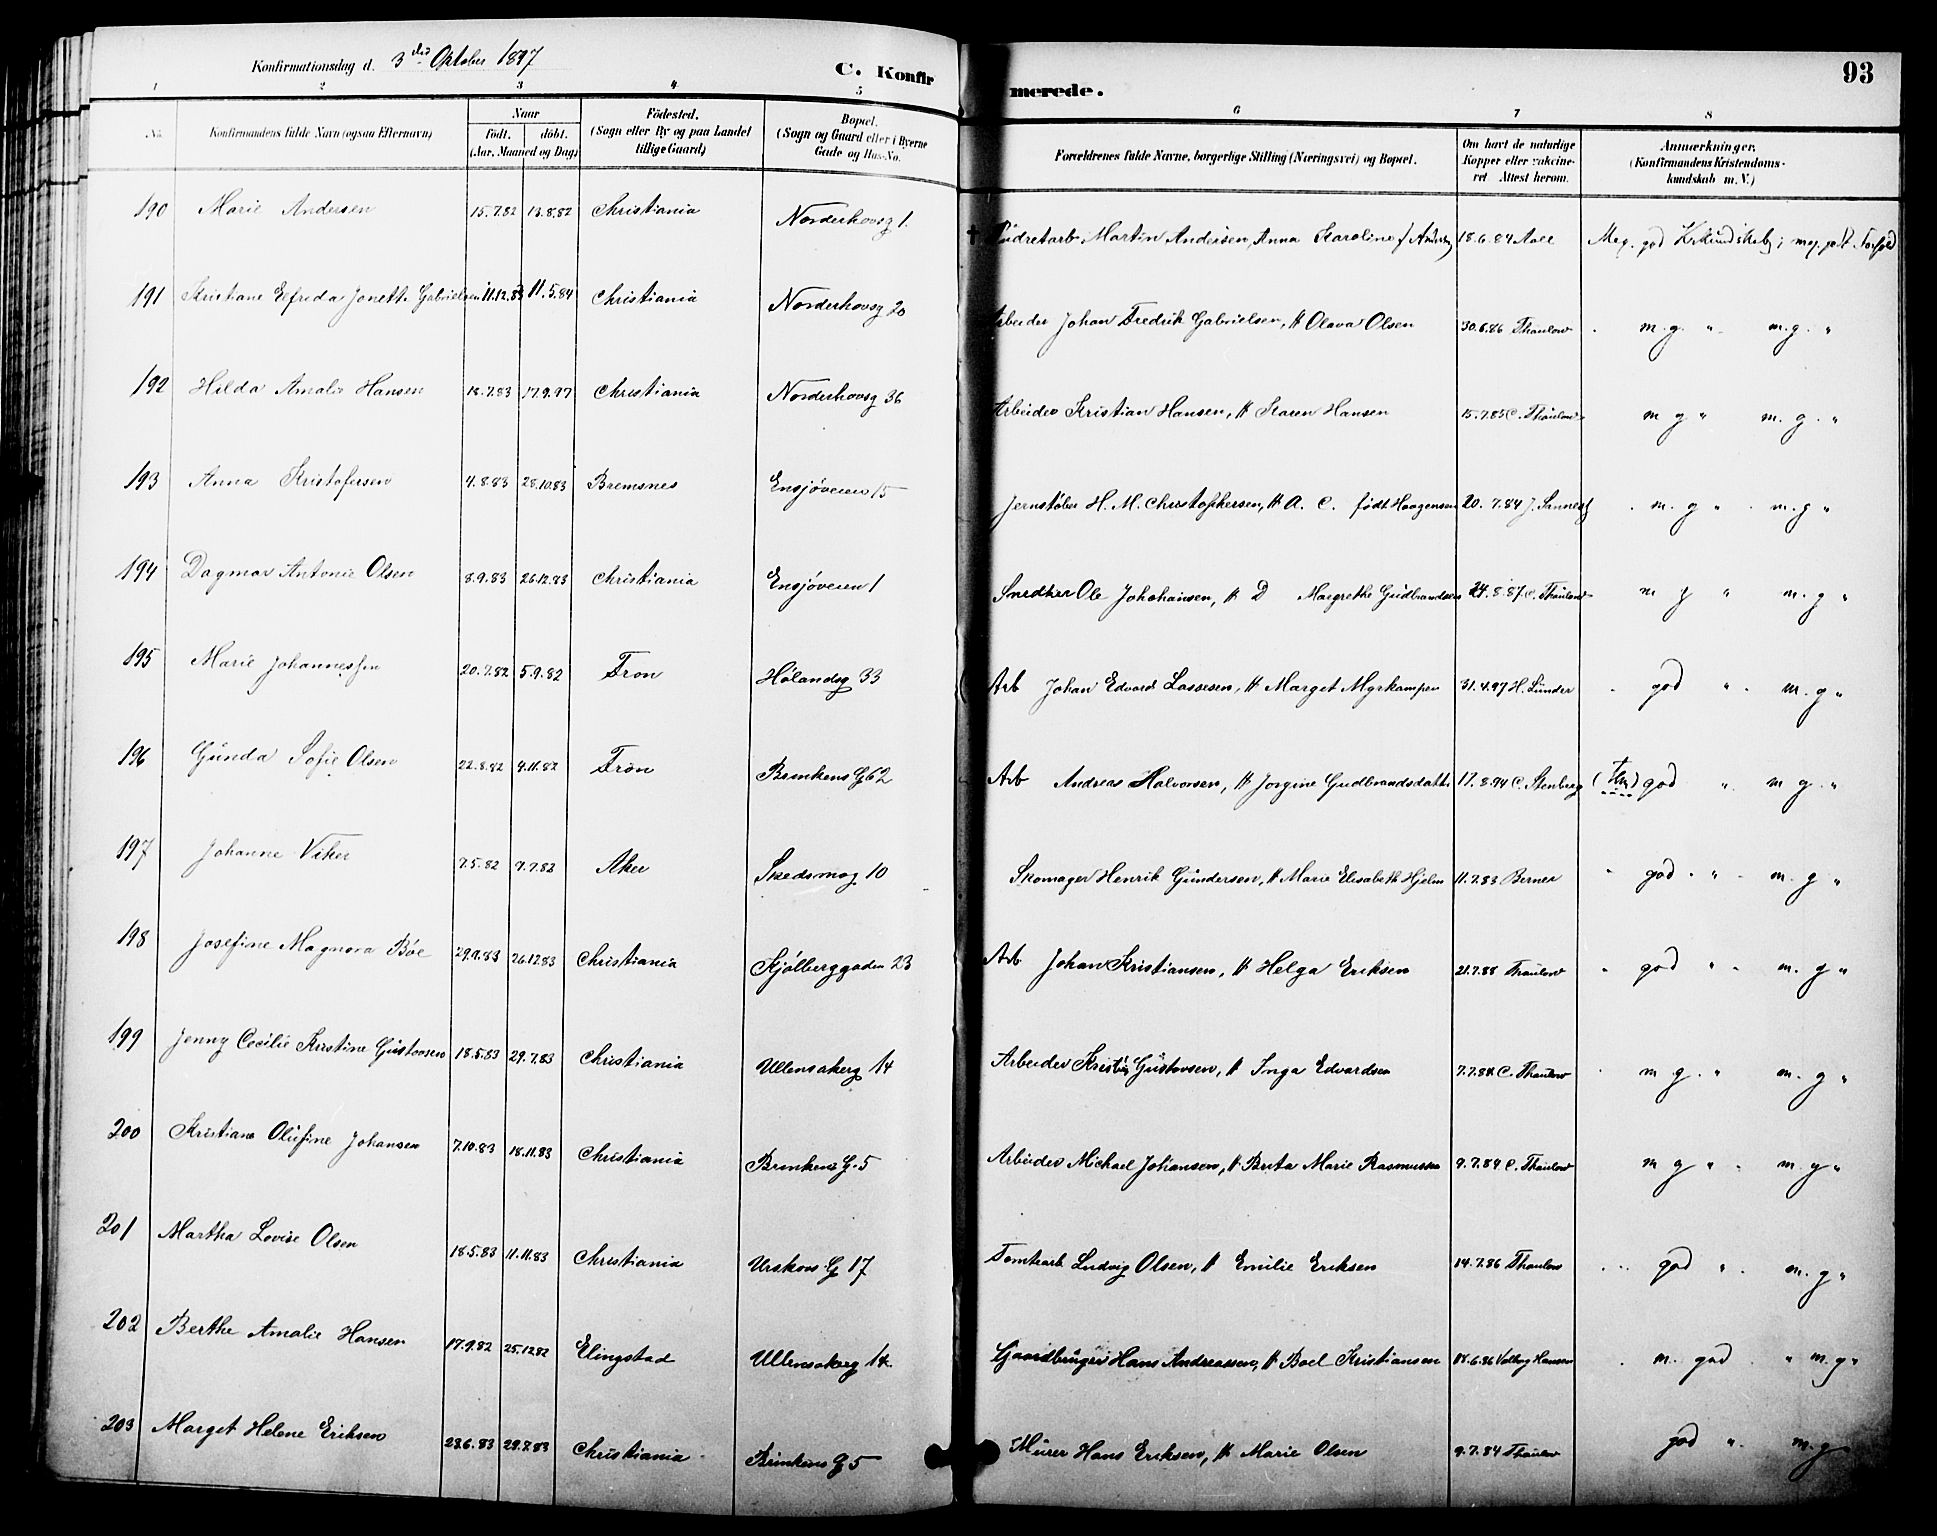 Konfirmationsdag d. 3die Oktober 1897 C. Konfir
merede. 93
1 2 3 4 5 6 7 8
No. Konfirmandens fulde Navn (ogsaa Efternavn) Naar født. døbt. (Aar, Maaned og Dag) Födested. (Sogn eller By og paa Landet tillige Gaard) Bopæl. (Sogn og Gaard eller i Byerne Gade og Hus-No. Forældrenes fulde Navne, borgerlige Stilling (Næringsvei) og Bopæl. Om havt de naturlige Kopper eller vakcineret Attest herom. Anmærkninger. (Konfirmandens Kristendomskundskab m. V.)
190 Marie Andersen 15.7.82 13.8.82 Christiania Norderhovsg 1. Martin Andersen, Anna Karoline f. 18.6.84 Meg. god Krkundskab; meg. godt Forhold
191 Kristiane Elfreda Jonette Gabrielsen 11.12.83 11.5.84 Christiania Norderhovsg 20 Arbeider Johan Fredrik Gabrielsen, H Olava Olsen 30.6.86 Thaulow m. g. " m. g. "
192 Hilda Amalie Hansen 18.7.83 17.9.97 Christiania Norderhovsg 36 Arbeider Kristian Hansen, H Karen Hansen 15.7.85 C. Thaulow m g " m. g. "
193 Anna Kristofersen 4.8.83 28.10.83 Bremsnes Ensjøveien 15 Jernstøber H. M. Christophersen, H A. C. født Haagensen 20.7.84 J. m. g " m. g "
194 Dagmar Antonie Olsen 8.9.83 26.12.83 Christiania Ensjøveien 1 Ole Johohansen, H D Margrethe Gudbrandsen 24.8.87 C. Thaulow m g " m. g "
195 Marie Johannessen 20.7.82 5.9.82 Fron Hølandsg 33 Arb Johan Edvard Lassesen, H Marget Myrkampen 31.4.97 H. Lunder god " m. g "
196 Gunda Sofie Olsen 22.8.82 4.11.82 Fron Brinkens G 62 Arb Andreas Halvorsen, H Jorgine Gudbrandsdatter 17.8.94 C. Stenberg god " m g. "
197 Johanne Viker 7.5.82 9.7.82 Aker Skedsmog 10 Skomager Henrik Gundersen, H Marie Elisabeth Hjelm 11.7.83 Berner god " m. g "
198 Josefine Magnora Bøe 29.9.83 26.12.83 Christiania Kjølberggaden 23 Arb Johan Kristiansen, H Helga Eriksen 21.7.88 Thaulow god " m. g "
199 Jenny Cecilie Kristine Gustovsen 18.5.83 29.7.83 Christiania Ullensakerg 14 Arbeider Gustovsen, H Inga Edvardsen 7.7.84 C. Thaulow m g. " m. g "
200 Kristiane Olufine Johansen 7.10.83 18.11.83 Christiania Brinkens G. 5 Arbeider Michael Johansen, H Berta Marie Rasmussen 9.7.84 C. Thaulow m g " m. g "
201 Martha Lovise Olsen 18.5.83 11.11.83 Christiania Urskovs G 17 Tomtearb Ludvig Olsen, H Emilie Eriksen 14.7.86 Thaulow god " m. g "
202 Berthe Amalie Hansen 17.9.82 25.12.82 Elingstad Ullensakerg 14. Gaardbruger Hans Andreassen, H Boel Kristiansen 18.6.86 Hansen m. god " m. g "
203 Marget Helene Eriksen 28.6.83 29.7.83 Christiania Brinkens G 5 Murer Hans Eriksen, H Marie Olsen 9.7.84 Thaulow god " m. g